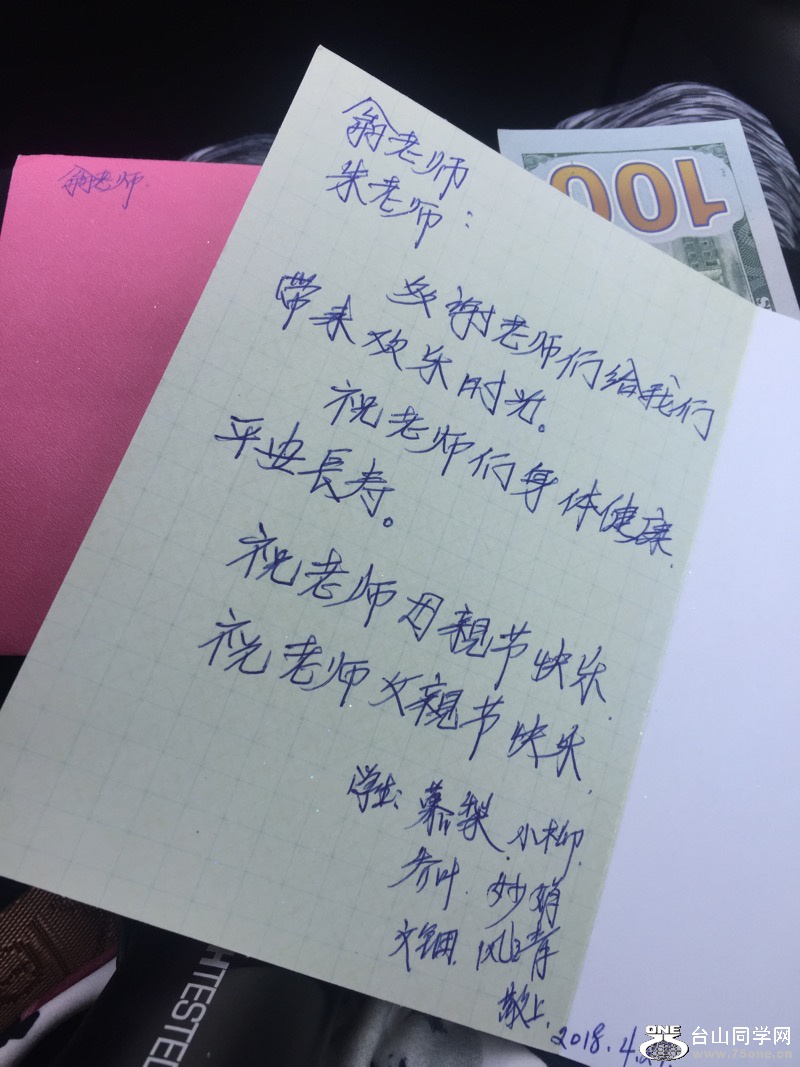 翁老师
翁老师
朱老师：
多谢老师们给我们
带来欢乐时光。
祝老师们身体健康
平安長寿。
祝老师母親节快乐
祝老师父親节快乐
学生: 慕梨 小柳
乔叶 妙娟
文钿 风青
敬上
2018.4.
100
HTESTED
ONE
台山同学网
www.75one.cn